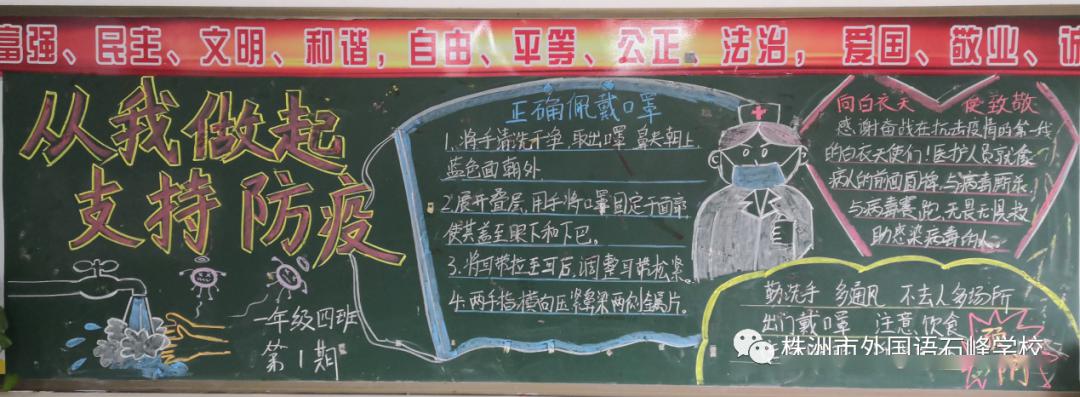 富强、民主、文明、和谐，自由、平等、公正、法治，爱国、敬业、诚
从我做起
支持防疫
一年级四班
第1期
正确佩戴口罩
1、将手清洗干净，取出口罩，鼻夹朝上
蓝色面朝外
2、展开叠层，用手将口罩固定于面部
使其盖至眼下和下巴。
3、将耳带拉至耳后，调整耳带松紧。
4、两手指横向压紧鼻梁两侧金属片。
向白衣天使致敬
感谢奋战在抗击疫情的第一线
的白衣天使们！医护人员就像
病人的前面盾牌，与病毒厮杀，
与病毒赛跑，无畏无惧救
助感染病毒的人。
勤洗手 多通风 不去人多场所
出门戴口罩 注意饮食
株洲市外国语石峰学校